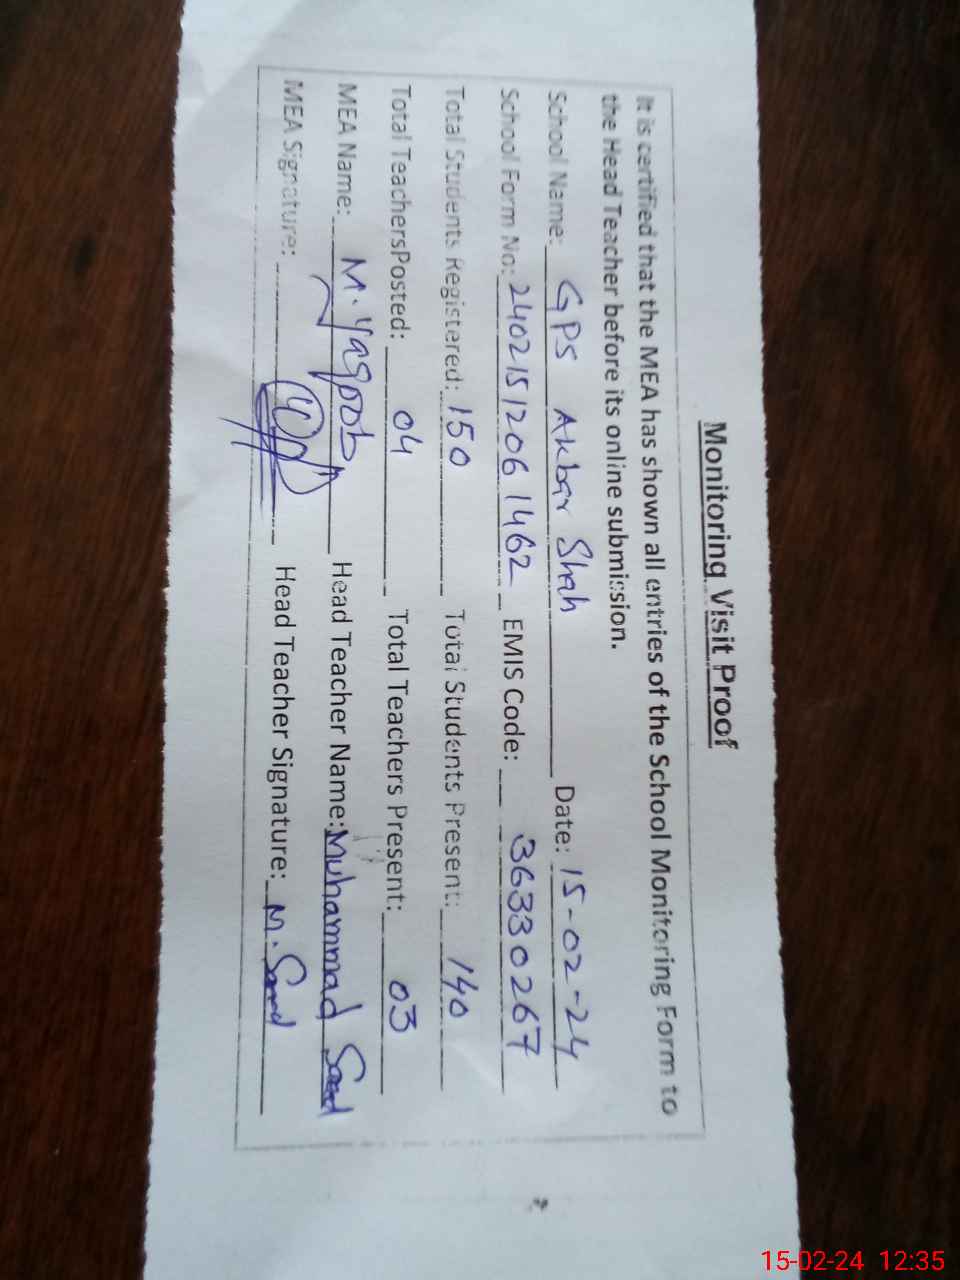 Monitoring Visit Proof
It is certified that the MEA has shown all entries of the School Monitoring Form to
the Head Teacher before its online submission.
School Name: GPS Akbar Shah Date: 15-02-24
School Form No: 24021512061462 EMIS Code: 36330267
Total Students Registered: 150 Total Students Present: 140
Total TeachersPosted: 04 Total Teachers Present: 03
MEA Name: M. Yaqoob Head Teacher Name: Muhammad Saad
MEA Signature: Head Teacher Signature: M. Saad
15-02-24 12:35